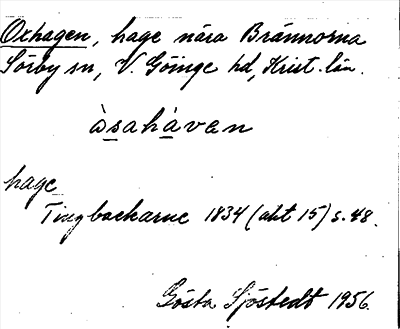 Oxhagen, hage nära Brännorna
Sörby sn, V. Göinge hd, Krist. län.
àsahàven
hage
Tingbackarne 1834 (akt 15) s. 48.
Gösta Sjöstedt 1956.